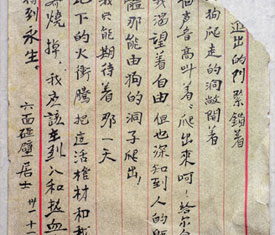 進出的門緊鎖着
狗爬走的洞敞開着
個声音高叫着。爬出來呵！給尔
我渴望着自由但也深知到人的
體那能由狗的洞子爬出
我只能期待着那一天
地下的火衝騰把這活棺材和我
齊燒掉，我应該在烈火和热血
得到永生。
六面碰壁居士
卅一 十一